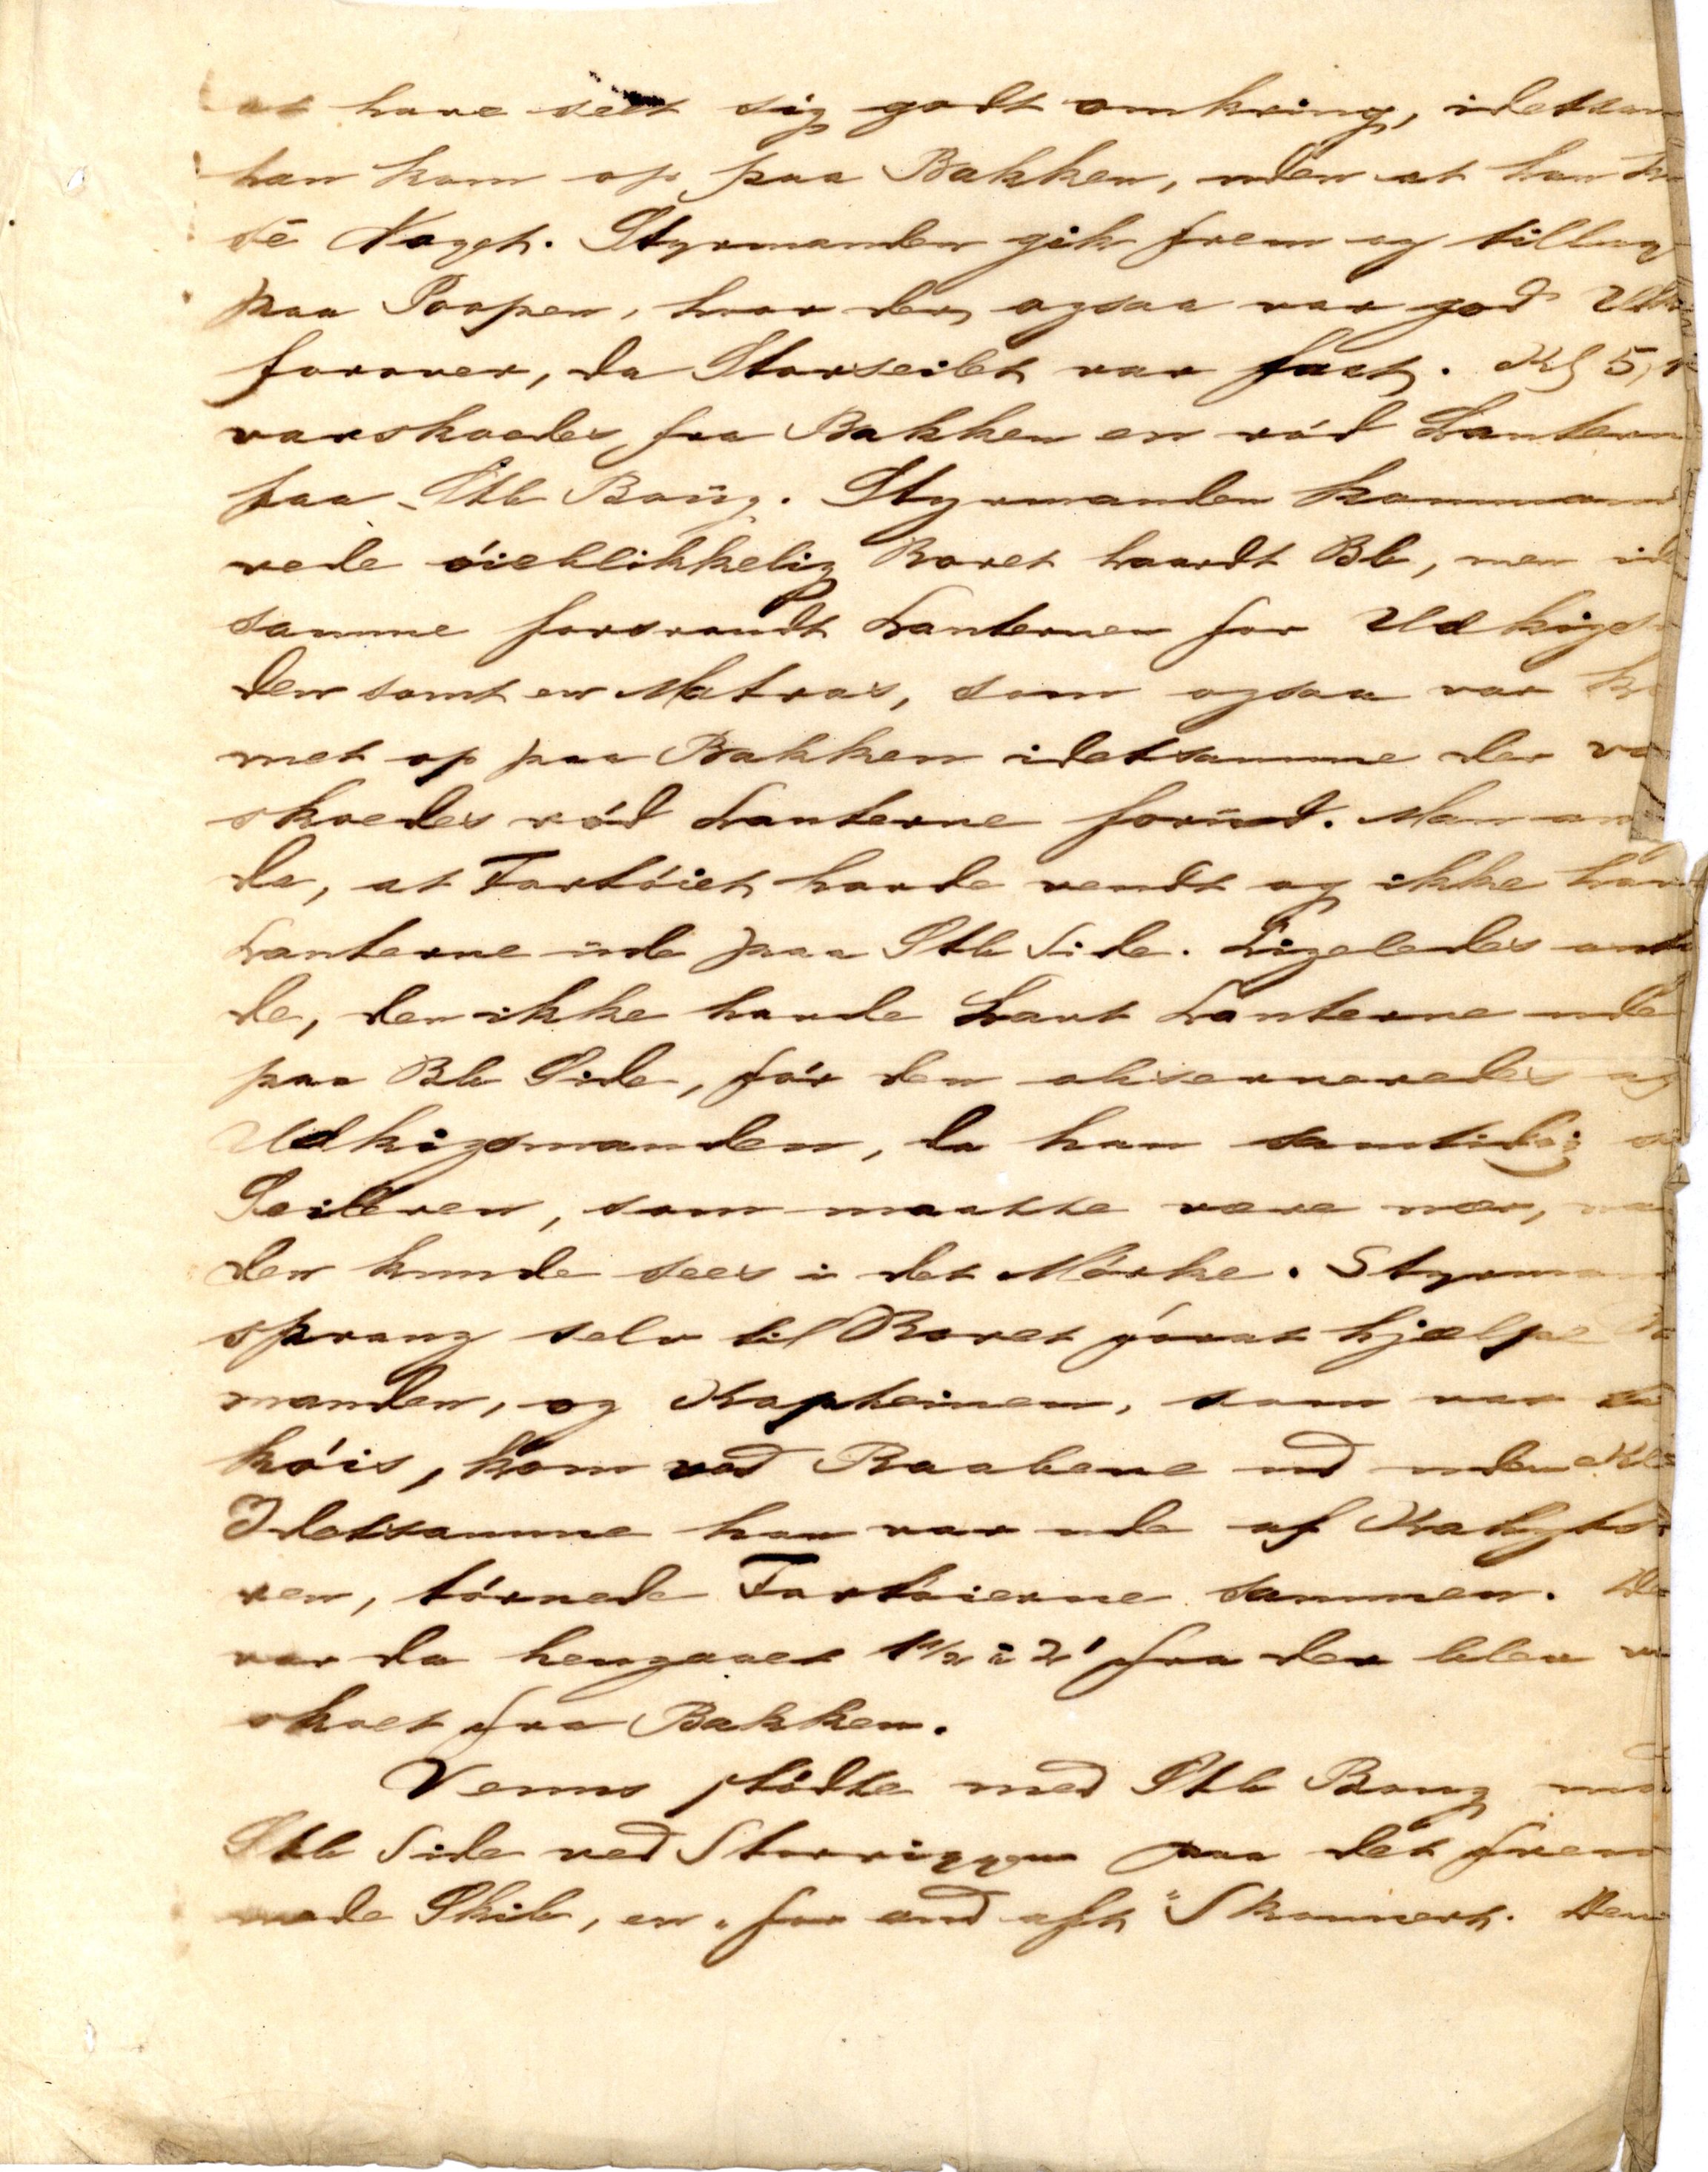 at have seet sig godt omkring, idetsam
han kom op paa Bakken, uden at han
sé Noget. Styrmanden gik frem og tilbag
paa Poopen, hvor der ogsaa var god
forover, da Storseilet var fast. Kl 5,
varskoedes fra Bakken en rød Lantern
paa Stb Boug. Styrmanden komman
rede øieblikkelig Roret haardt Bb, men
samme forsvandt Lanternen for Udkigs
den samt en Matros, som ogsaa var
met op paa Bakken idetsamme der va
skoedes rød Lanterne forud. Man an
da, at Fartøiet havde vendt og ikke hav
Lanterne ude paa Stb Side. Ligeledes ant
de, den ikke havde havt Lanterne ude
paa Bb Side, før den observeredes af
Udkigsmanden, da han samtidig
Seileren, som maatte være nær,
den kunde sees i det Mørke. Styrman
sprang selv til Roret for at hjælpe
manden, og Kapteinen, som var
køis, kom ved Raabene ud uden
Idetsamme han var ude af Kahyts
ren, tørnede Fartøierne sammen. De
var da hengaaet 1½ à 2' fra der blev
skoet fra Bakken.
Venus stødte med Stb Boug mod
Stb Side ved Storriggen paa det frem
mede Skib, en "for and aft" Skonnert. Den